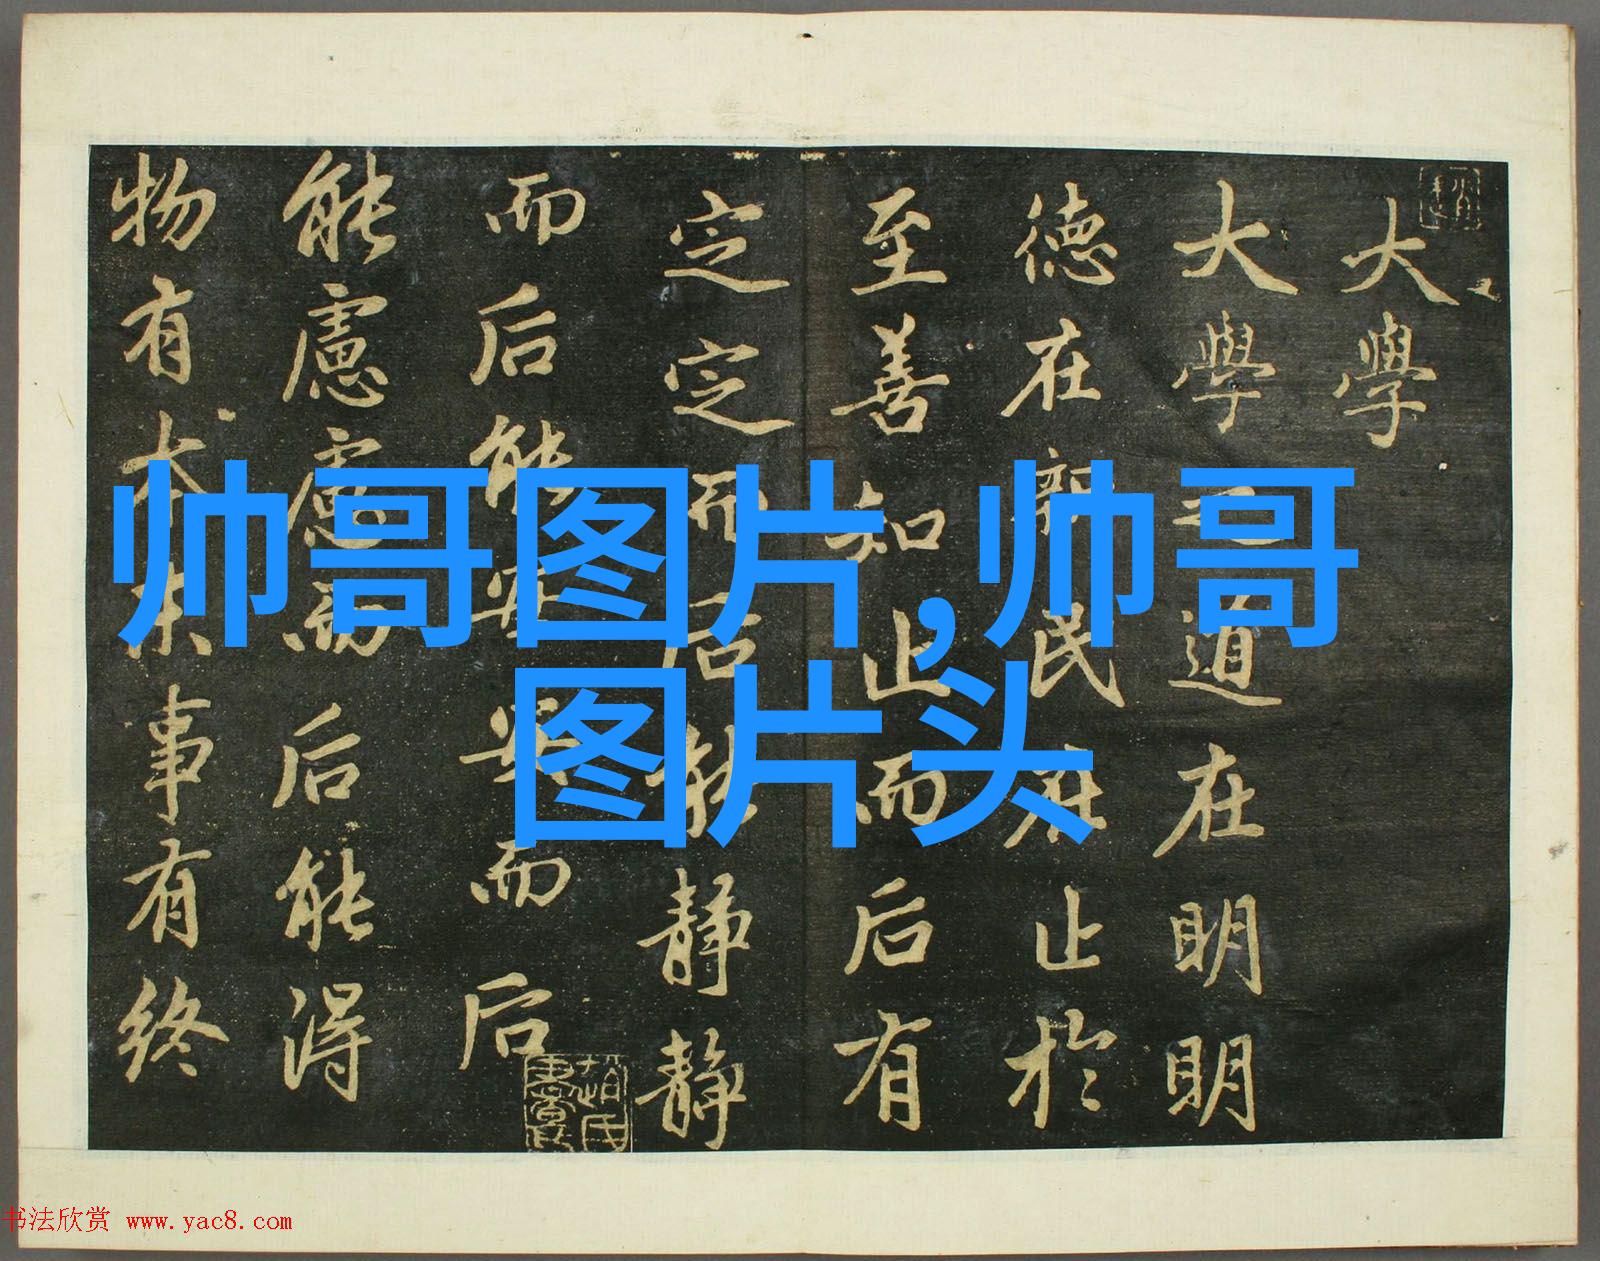 大學
大學之道在明明
德在親民在止於
至善知止而后有
定定而后能静静
而后能安安而后
能慮慮而后能得
物有本末事有終
帅哥图片,帅哥
图片头
书法欣赏 www.yac8.com